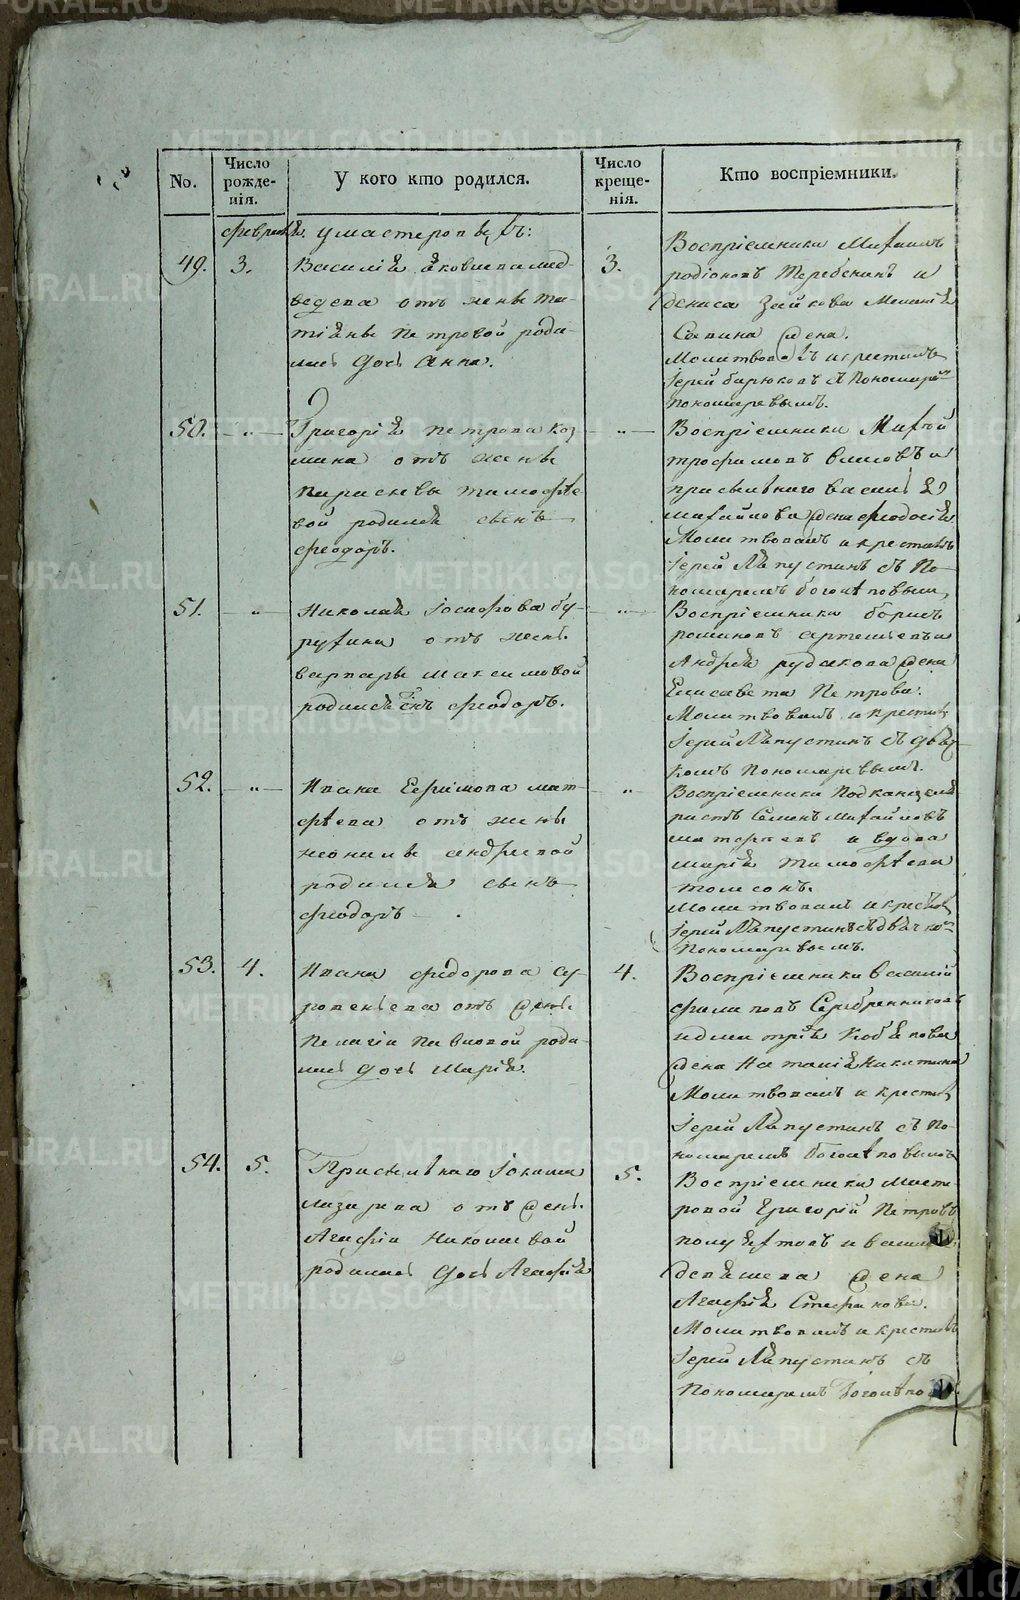 No.
Число рожде-нія.
У кого кто родился.
Число креще-нія.
Кто воспріемники.
февраля. у мастеровыхъ:
49. 3.
Василія Яковлева мед-
ведева отъ жены та-
тіаны Петровой роди-
лась дочь Анна.
3.
Воспріемники Михаилъ
родіоновъ теребенинъ и
дениса Зайкова
Савина жена.
Молитвовалъ и крестилъ
Іерей бирюковъ съ Пономаремъ
пономаревымъ.
50. — „ —
Григорія петрова коз
мина отъ жены
параскевы тимофѣе
вой родился сынъ
феодоръ.
— „ —
Воспріемники
трофимовъ и
присыльнаго васил
михайлова жена феодосія
Молитвовалъ и крестилъ
Іерей Ляпустинъ съ По-
номаремъ боголѣповымъ,
51. „
Николая Іосифова бу-
рухина отъ жены
варвары максимовой
родился сынъ феодоръ.
— „ —
Воспріемники борисъ
артемьевъ и
Андрея рудакова жена
Елисавета Петрова.
Молитвовалъ и крестилъ
Іерей Ляпустинъ съ дьяч-
комъ пономаревымъ.
52. — „ —
Ивана Ефимова мат-
фѣева отъ жены
неонилы андреевой
родился сынъ
феодоръ.
„
Воспріемники Подканцеля
ристъ Семенъ Михайловъ
и вдова
марія тимофѣева
Молитвовалъ и крестилъ
Іерей Ляпустинъ съ дьячкомъ
Пономаревымъ.
53. 4.
Ивана федорова су-
ровцева отъ жены
Пелагіи Павловой роди-
лась дочь Марія.
4.
Воспріемники василій
филиповъ Серебренниковъ
и дмитрія кобякова
жена Наталія Никитина
Молитвовалъ и крестилъ
Іерей Ляпустинъ съ По-
номаремъ боголѣповымъ
54. 5.
Присыльнаго Іоакима
лазарева отъ жены
Агафіи Николаевой
родилась дочь Агафія
5.
Воспріемники масте-
ровой Григорій Петровъ
полуяхтовъ и
жена
Агафія Стефанова.
Молитвовалъ и крестилъ
Іерей Ляпустинъ съ
Пономаремъ
METRIKI.GASO-URAL.RU